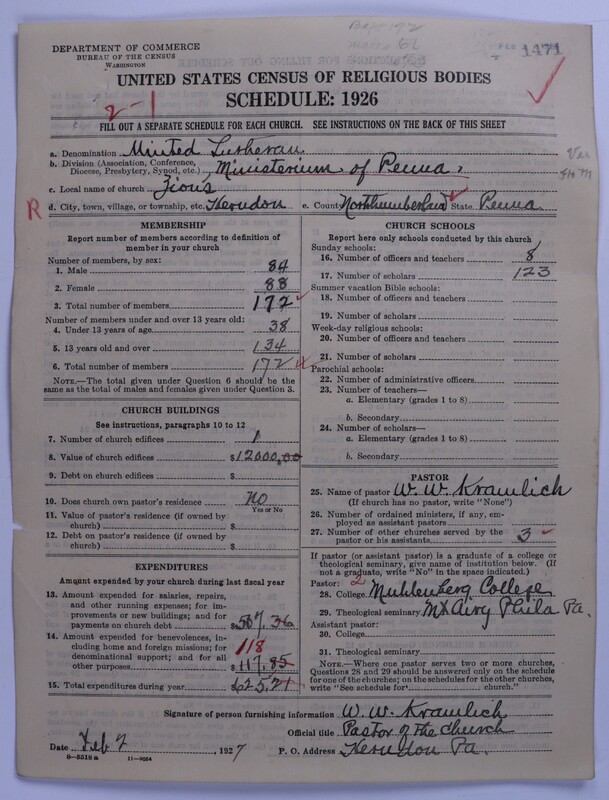 DEPARTMENT OF COMMERCE
BUREAU OF THE CENSUS
WASHINGTON
FEB 1471
UNITED STATES CENSUS OF RELIGIOUS BODIES
2-1
SCHEDULE: 1926
FILL OUT A SEPARATE SCHEDULE FOR EACH CHURCH. SEE INSTRUCTIONS ON THE BACK OF THIS SHEET
a. Denomination United Lutheran
b. Division (Association, Conference, Diocese, Presbytery, Synod, etc.) Ministerium of Penna.
c. Local name of church Zions
R d. City, town, village, or township, etc. Herndon e. County Northumberland State Penna
MEMBERSHIP
Report number of members according to definition of
member in your church
Number of members, by sex:
1. Male 84
2. Female 88
3. Total number of members 172
Number of members under and over 13 years old:
4. Under 13 years of age 38
5. 13 years old and over 134
6. Total number of members 172
NOTE.—The total given under Question 6 should be the
same as the total of males and females given under Question 3.
CHURCH BUILDINGS
See instructions, paragraphs 10 to 12
7. Number of church edifices 1
8. Value of church edifices $12000,00
9. Debt on church edifices $
10. Does church own pastor's residence NO
Yes or No
11. Value of pastor's residence (if owned by
church) $
12. Debt on pastor's residence (if owned by
church) $
EXPENDITURES
Amount expended by your church during last fiscal year
13. Amount expended for salaries, repairs,
and other running expenses; for im-
provements or new buildings; and for
payments on church debt $507.36
14. Amount expended for benevolences, in- 118
cluding home and foreign missions; for
denominational support; and for all
other purposes $117.85
15. Total expenditures during year 625.21
CHURCH SCHOOLS
Report here only schools conducted by this church
Sunday schools:
16. Number of officers and teachers 8
17. Number of scholars 123
Summer vacation Bible schools:
18. Number of officers and teachers
19. Number of scholars
Week-day religious schools:
20. Number of officers and teachers
21. Number of scholars
Parochial schools:
22. Number of administrative officers
23. Number of teachers—
a. Elementary (grades 1 to 8)
b. Secondary
24. Number of scholars—
a. Elementary (grades 1 to 8)
b. Secondary
PASTOR
25. Name of pastor W. W. Kramlich
(If church has no pastor, write "None")
26. Number of ordained ministers, if any, em-
ployed as assistant pastors
27. Number of other churches served by the
pastor or his assistants 3
If pastor (or assistant pastor) is a graduate of a college or
theological seminary, give name of institution below. (If
not a graduate, write "No" in the space indicated.)
Pastor: 2
28. College Muhlenberg College
29. Theological seminary Mt Airy Phila Pa.
Assistant pastor:
30. College
31. Theological seminary
NOTE.—Where one pastor serves two or more churches,
Questions 28 and 29 should be answered only on the schedule
for one of the churches; on the schedules for the other churches,
write "See schedule for church."
Signature of person furnishing information W. W. Kramlich
Official title Pastor of the Church
Date Feb 2, 1927 P. O. Address Herndon Pa.
8—5518a 11—9054